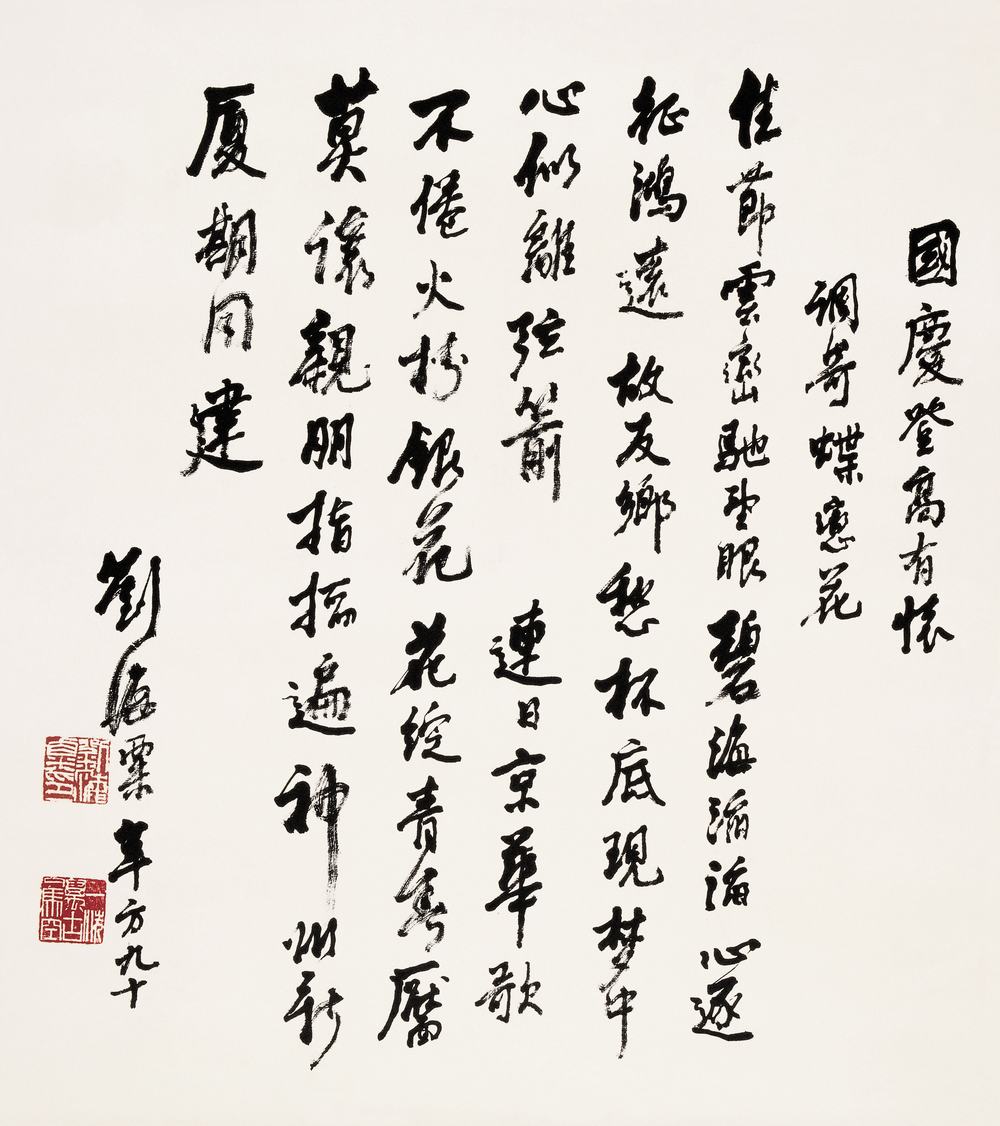 國慶登高有懷
调寄蝶戀花
佳節雲巒馳望眼碧海滔滔心逐
征鴻遠故友鄉愁杯底現梦中
心似離弦箭連日京華歌
不倦火樹銀花花綻青春靨
莫讓親朋指掐遍神州新
厦期同建
劉海粟年方九十